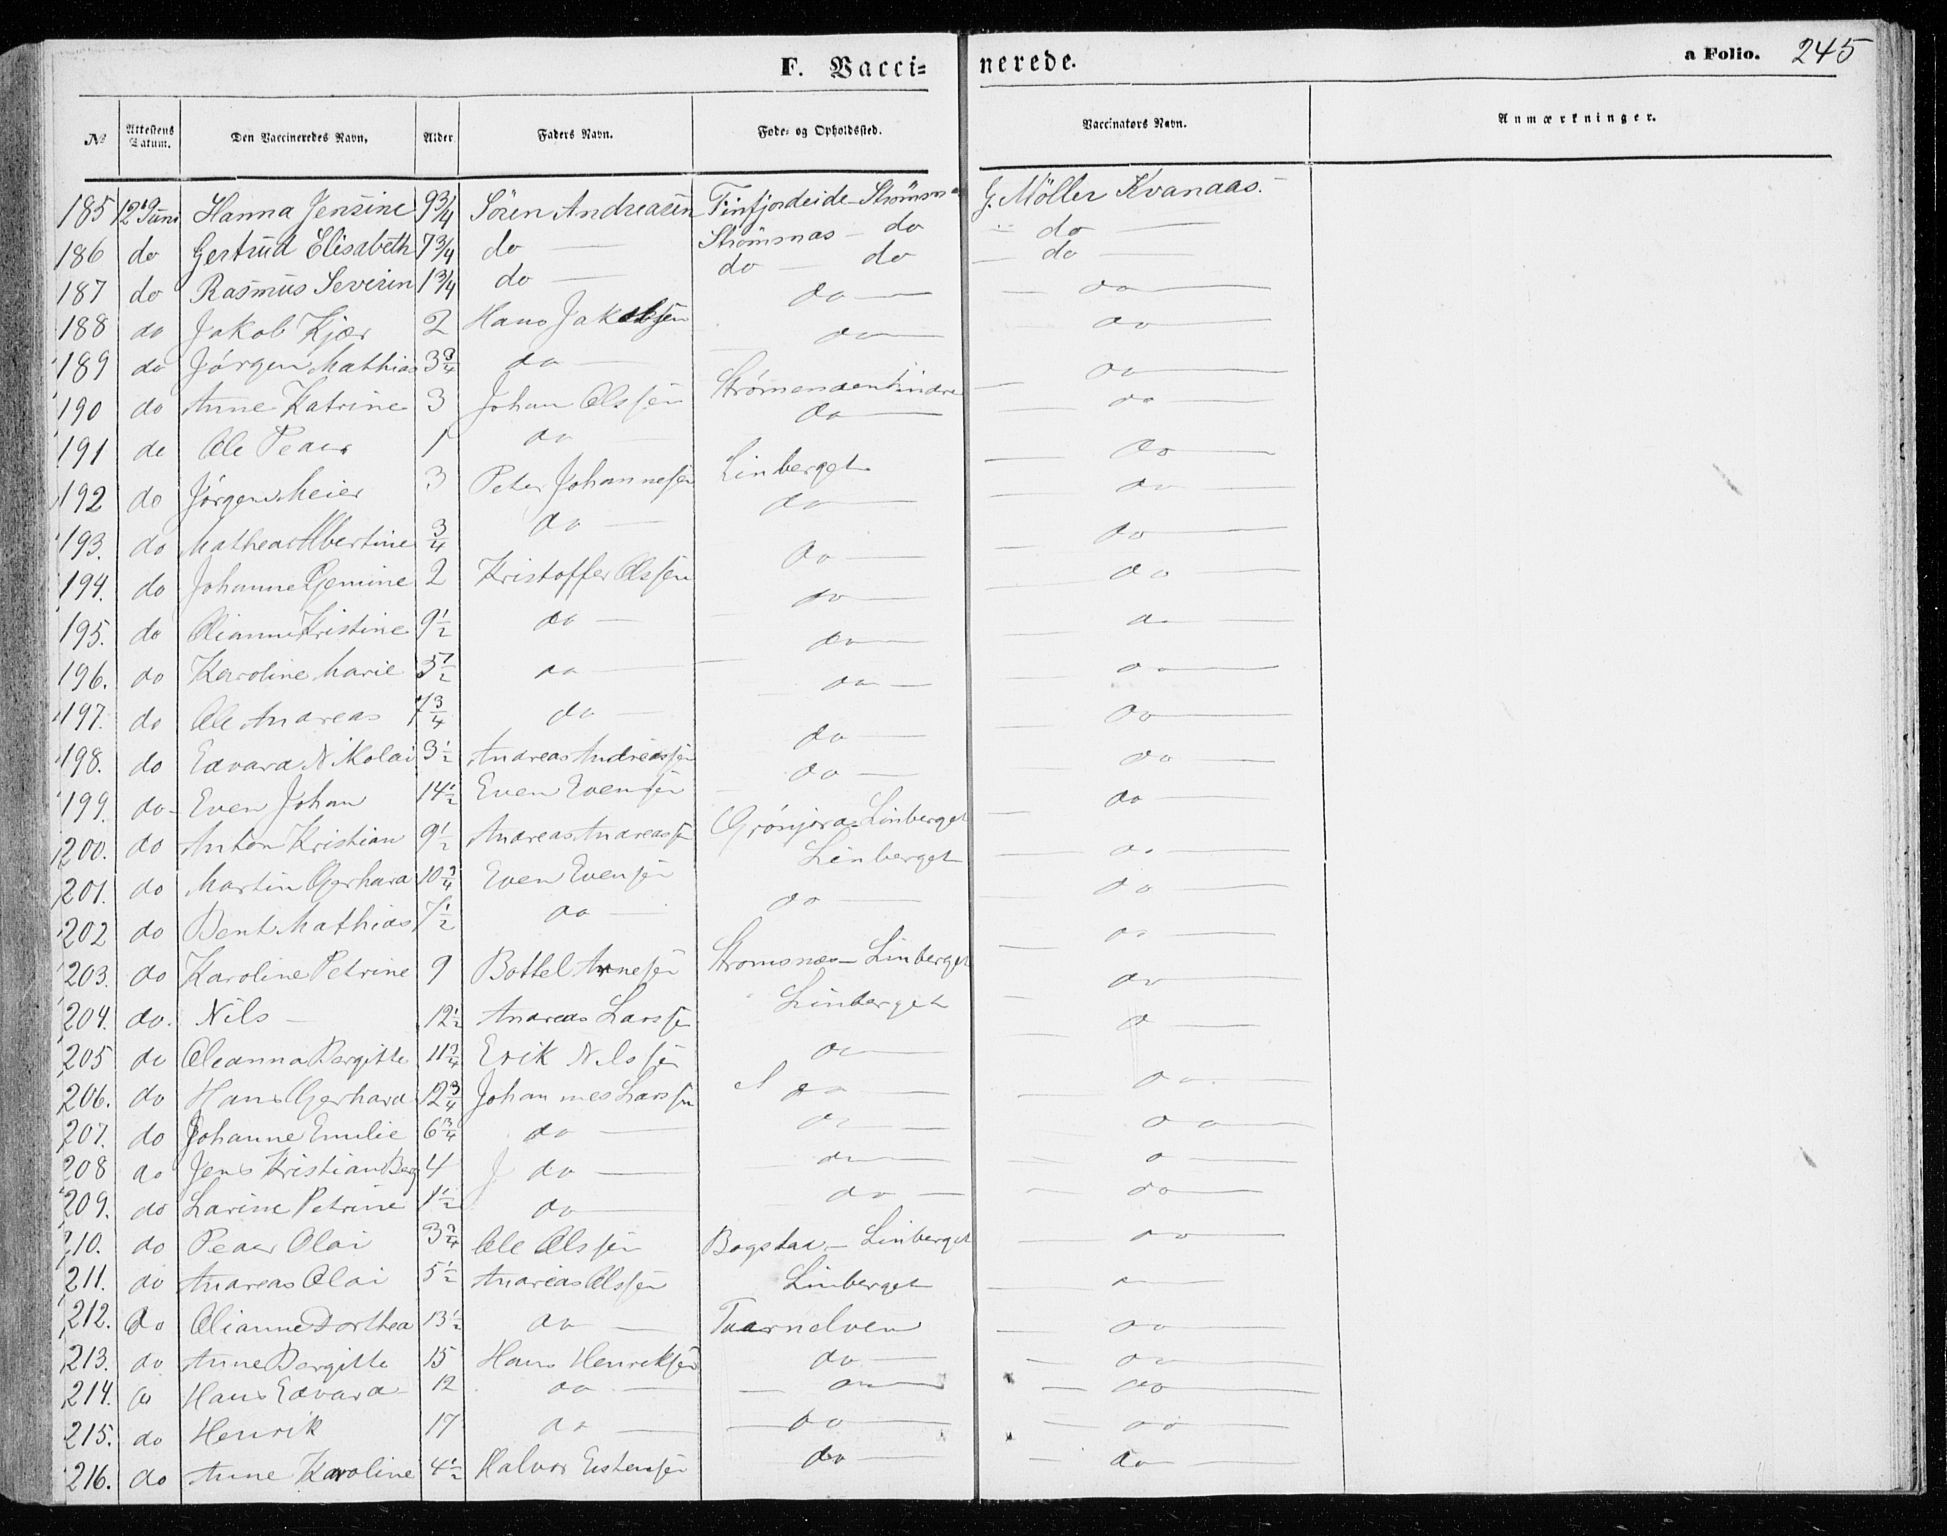 F. Vacci= nerede.
a Folio. 245
№ Attestens Datum. Den Vaccineredes Navn, Alder Faders Navn. Føde- og Opholdssted. Vaccinators Navn. Anmærkninger.
185 12 Juni Hanna Jensine 9 3/4 Sören Andreasen Finfjordeide G. Möller Kvanaas.
186 do Gertrud Elisabeth 7 3/4 do — Strømsnas — do do —
187 do Rasmus Severin 1 3/4 do — do — do — do —
188 do Jakob Kjær 2 Hans Jakobsen do — — do —
189 do Jørgen Mathias 3 3/4 do — do — do —
190 do Anne Katrine 3 Johan Olssen — do —
191 do Ole Peder 1 do do — do —
192 do Jørgen Meier 3 Peter Johannesen Linberget — do —
193. do Mathea Albertine 3/4 do — do — — do —
194. do Johanne 2 Kristoffer Olssen do — — do —
195. do Olianne Kristine 9 1/2 do — do — do —
196. do Karoline Marie 5 1/2 do — do — do —
197. do Ole Andreas 7 3/4 do — do — do —
198. do Edvard Nikolai 3 1/2 Andreas Andreassen do — do —
199. do Even Johan 14 1/2 Even Evensen do — do —
200. do Anton Kristian 9 1/2 Andreas Andreassen Grønjord Linberget do —
201. do Martin Gerhard 10 3/4 Even Evensen Linberget — do —
202 do Bent Mathias 7 1/2 do — do — do —
203. do Karoline Petrine 9 Bottel Arnesen Stromsnes — Linberget — do —
204. do. Nils — 12 1/2 Andreas Larssen Linberget — do —
205 do Oleanna Bergitte 11 3/4 Erik Nilssen do — do —
206. do Hans Gerhard 12 3/4 Johannes Larssen do — do —
207. do Johanne Emilie 6 3/4 do — do — do —
208 do Jens Kristian Berg 4 do — do — do —
209. do Larine Petrine 1 1/2 do — do — do —
210. do Peder Olai 3 3/4 Ole Olssen Bogstad — Linberget do —
211. do Andreas Olai 5 1/2 Andreas Olssen Linberget do —
212. do Olianne Dorthea 13 1/2 do — — do —
213. do Anne Bergitte 15 Hans Henriksen do — — do —
214. do Hans Edvard 12 do — — do — — do
215. do Henrik 17 do — — do — — do —
216. do Anne Karoline 4 1/2 Halvor Eistensen do — — do —